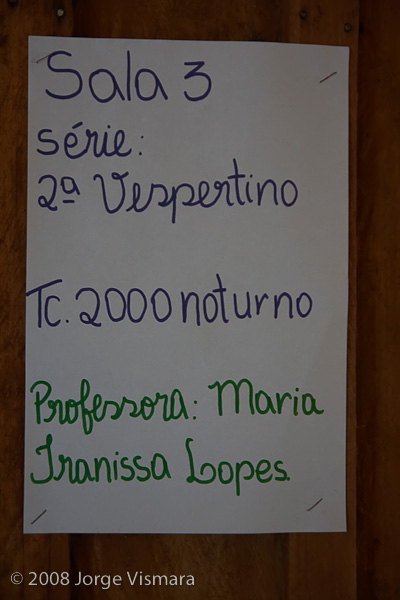 Sala 3
série:
2ª Vespertino
Tc. 2000 noturno
Professora: Maria
Iranissa Lopes.
© 2008 Jorge Vismara